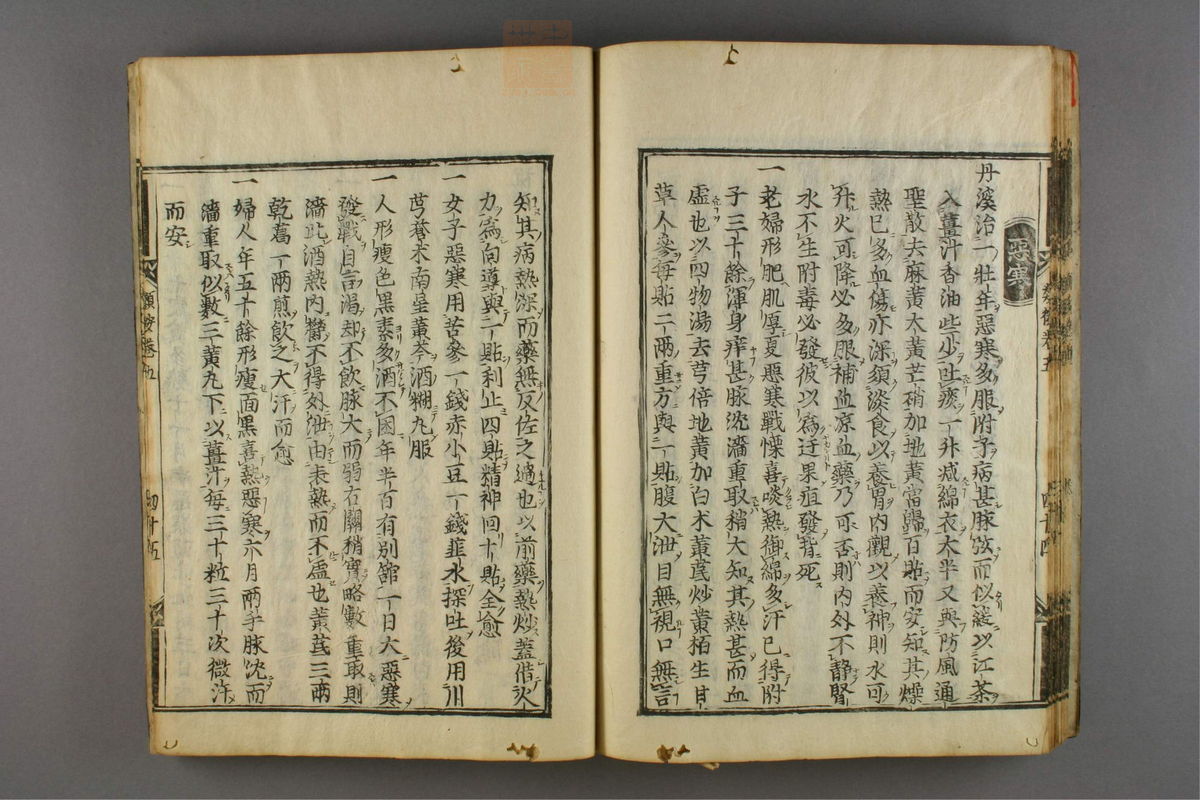 惡寒
丹溪治一壯年惡寒多服附子病甚脉弦而似緩以江茶
入薑汁香油些少吐痰一升减綿衣太半又與防風通
聖散去麻黃大黃芒硝加地黃當歸百貼而安知其燥
熱已多血傷亦深須淡食以養胃內觀以養神則水可
升火可降必多服補血凉血藥乃可否則內外不靜腎
水不生附毒必發彼以為迂果疽發背死
一老婦形肥肌厚夏惡寒戰慄喜啖熱御綿多汗已得附
子三十餘渾身痒甚脉沈濇重取稍大知其熱甚而血
虛也以四物湯去芎倍地黃加白术黃芪炒黃栢生甘
草人參每貼二兩重方與一貼腹大泄目無視口無言
知其病熱深而藥無反佐之過也以前藥熱炒蓋借火
力為向導與一貼利止四貼精神回十貼全愈
一女子惡寒用苦參一錢赤小豆一錢韮水探吐後用川
芎蒼术南星黃芩酒糊丸服
一人形瘦色黑素多酒不困年半百有別舘一日大惡寒
發戰自言渴却不飲脉大而弱右關稍實略數重取則
濇此酒熱內鬱不得外泄由表熱而不虛也黃芪三兩
乾葛一兩煎飲之大汗而愈
一婦人年五十餘形瘦面黑喜熱惡寒六月兩手脉沈而
濇重取似數三黃丸下以薑汁每三十粒三十次微汗
而安